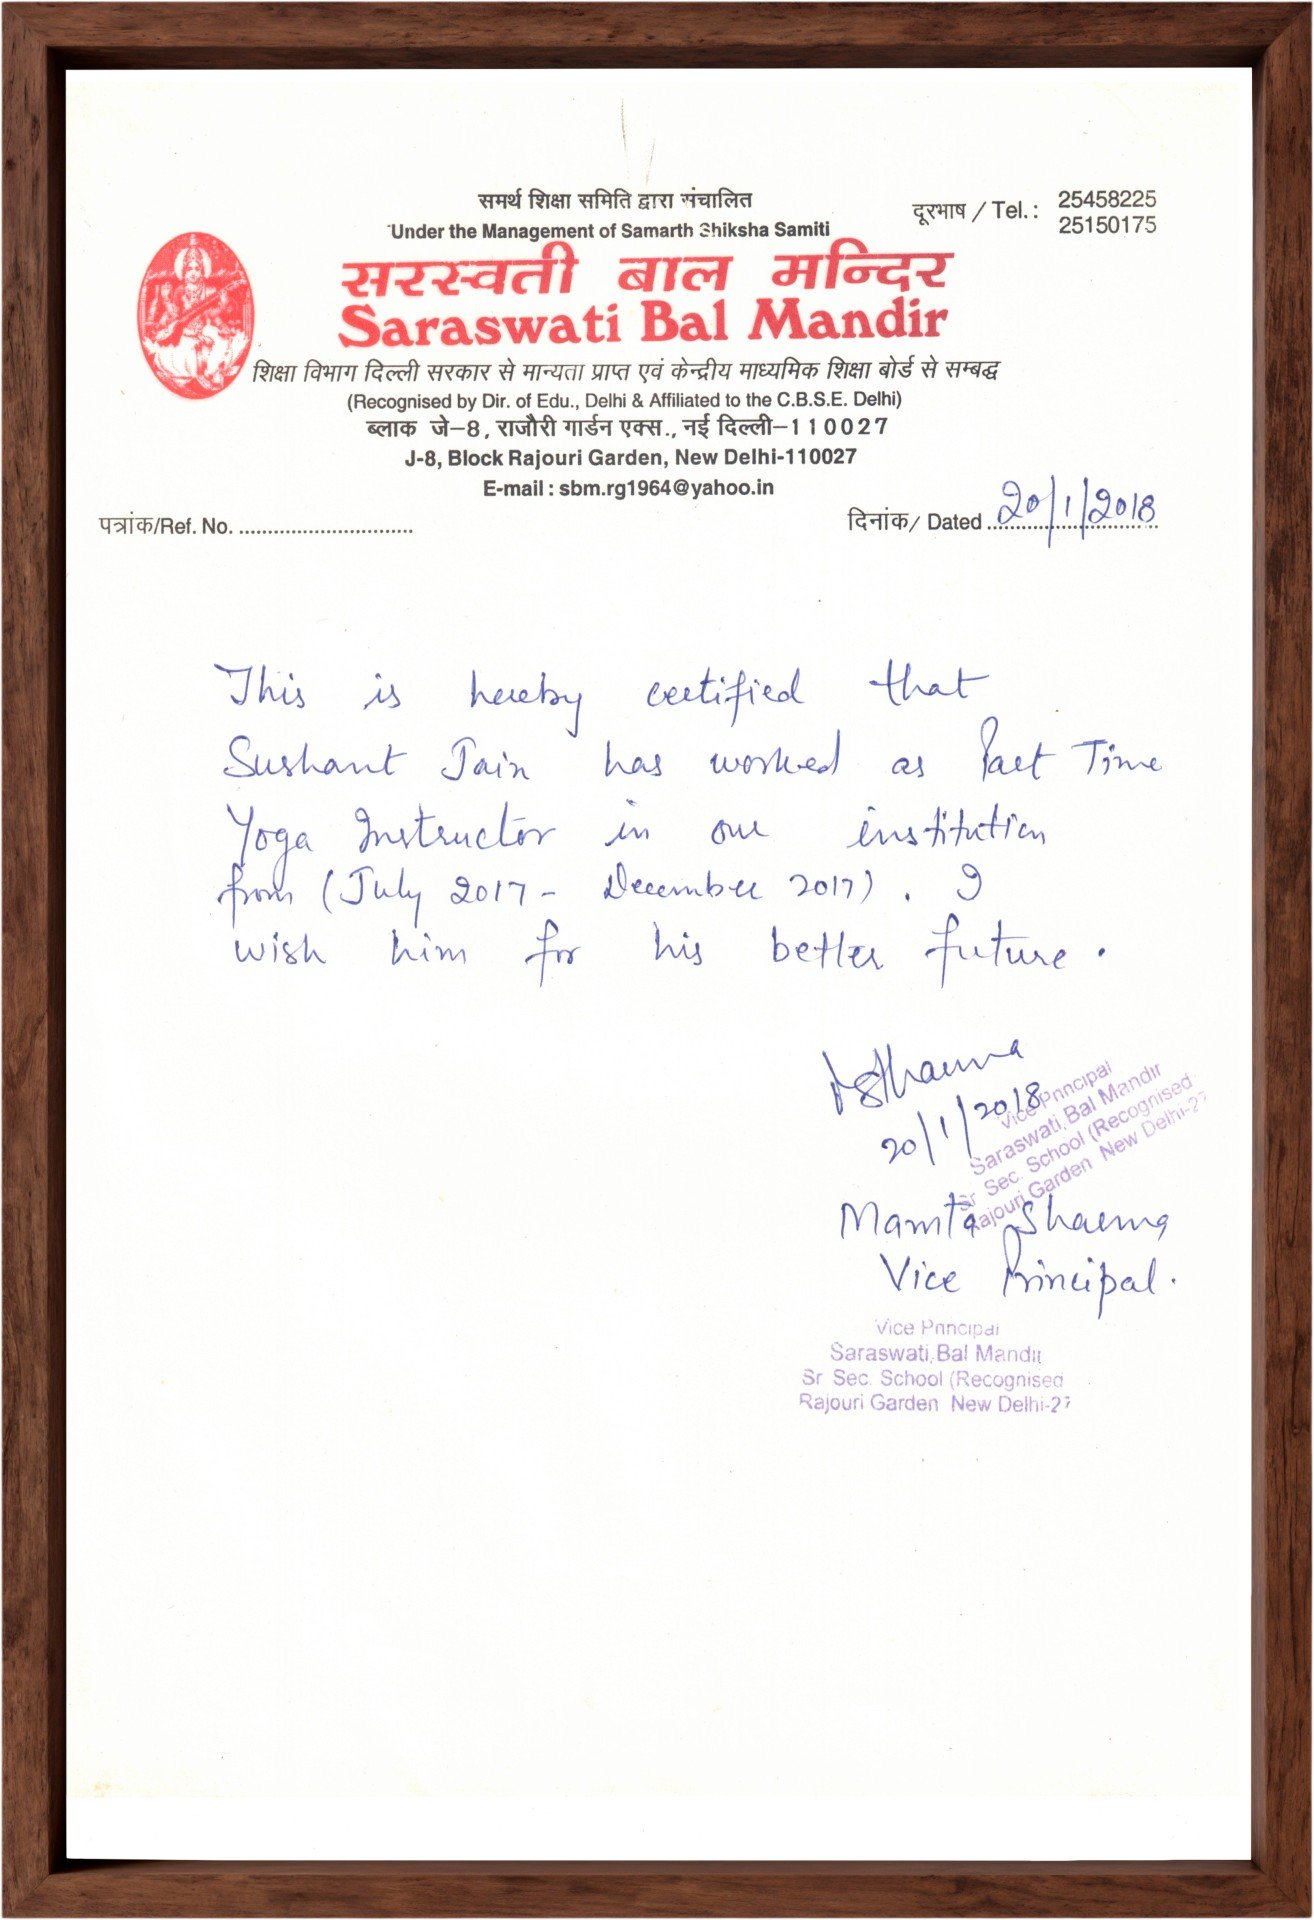 समर्थ शिक्षा समिति द्वारा संचालित
Under the Management of Samarth Shiksha Samiti
दूरभाष / Tel.: 25458225
25150175
सरस्वती बाल मन्दिर
Saraswati Bal Mandir
शिक्षा विभाग दिल्ली सरकार से मान्यता प्राप्त एवं केन्द्रीय माध्यमिक शिक्षा बोर्ड से सम्बद्ध
(Recognised by Dir. of Edu., Delhi & Affiliated to the C.B.S.E. Delhi)
ब्लाक जे-8, राजौरी गार्डन एक्स., नई दिल्ली-110027
J-8, Block Rajouri Garden, New Delhi-110027
E-mail : sbm.rg1964@yahoo.in
पत्रांक/Ref. No. ..............................
दिनांक/ Dated 20/1/2018
This is hereby certified that
Sushant Jain has worked as Part Time
Yoga Instructor in our institution
from (July 2017 - December 2017). I
wish him for his better future.
20/1/2018
Vice Principal
Saraswati Bal Mandir
Sr Sec. School (Recognised
Rajouri Garden New Delhi-27
Mamta Sharma
Vice Principal.
Vice Principal
Saraswati Bal Mandir
Sr Sec. School (Recognised
Rajouri Garden New Delhi-27